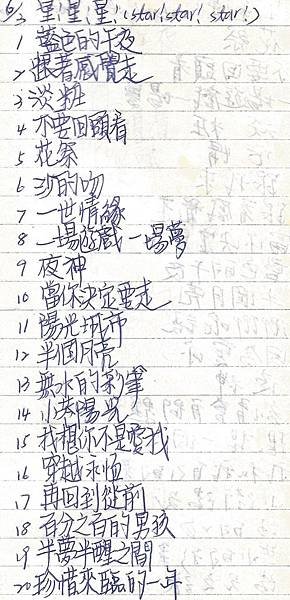 6/3 星!星!星!(star! star! star!)
1 藍色的午夜
2 跟著感覺走
3 淡粧
4 不要回頭看
5 花祭
6 沙的吻
7 一世情緣
8 一場遊戲一場夢
9 夜神
10 當你決定要走
11 陽光城市
12 半個月亮
13 無水的彩筆
14 小巷陽光
15 我想你不是愛我
16 穿越永恒
17 再回到從前
18 百分之百的男孩
19 半夢半醒之間
20 珍惜來臨的一年